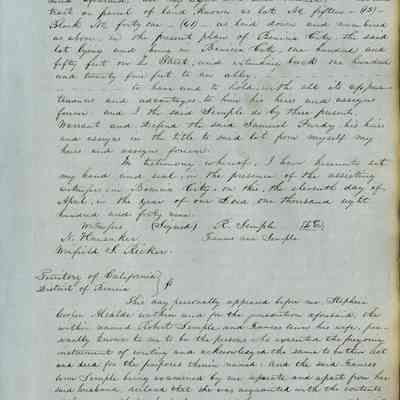 tract or parcel of land known as lot No fifteen - (15) -
Block No forty one - (41) - as laid down and numbered
as above in the present plan of Benicia City. the said
lot lying and being in Benicia City, one hundred and
fifty feet on Street, and extending back one hundred
and twenty five feet to an alley.
to have and to hold, with all its appur-
tenances and advantages to him his heirs and assigns
forever. and I the said Semple do by these presents,
Warrant and defend the said Samuel his heirs
and assigns in the title to said lot from myself my
heirs and assigns forever.
In testimony whereof, I have hereunto set
my hand and seal, in the presence of the assisting
witnesses in Benicia City, on this, the eleventh day of
April, in the year of our Lord one thousand eight
hundred and forty nine.
Witnesses (Signed) R. Semple
N. Frances Ann Semple
Winfield S.
Territory of California
District of Benicia
This day personally appeared before me Stephen
Cooper Alcalde within and for the jurisdiction aforesaid, the
within named Robert Semple, and Frances Ann his wife, per-
sonally known to me to be the persons who executed the foregoing
instrument of writing and acknowledged the same to be their act
and deed for the purposes therein named. And the said Frances
Ann Semple being examined by me separate and apart from her
said husband, declared that she was acquainted with the contents